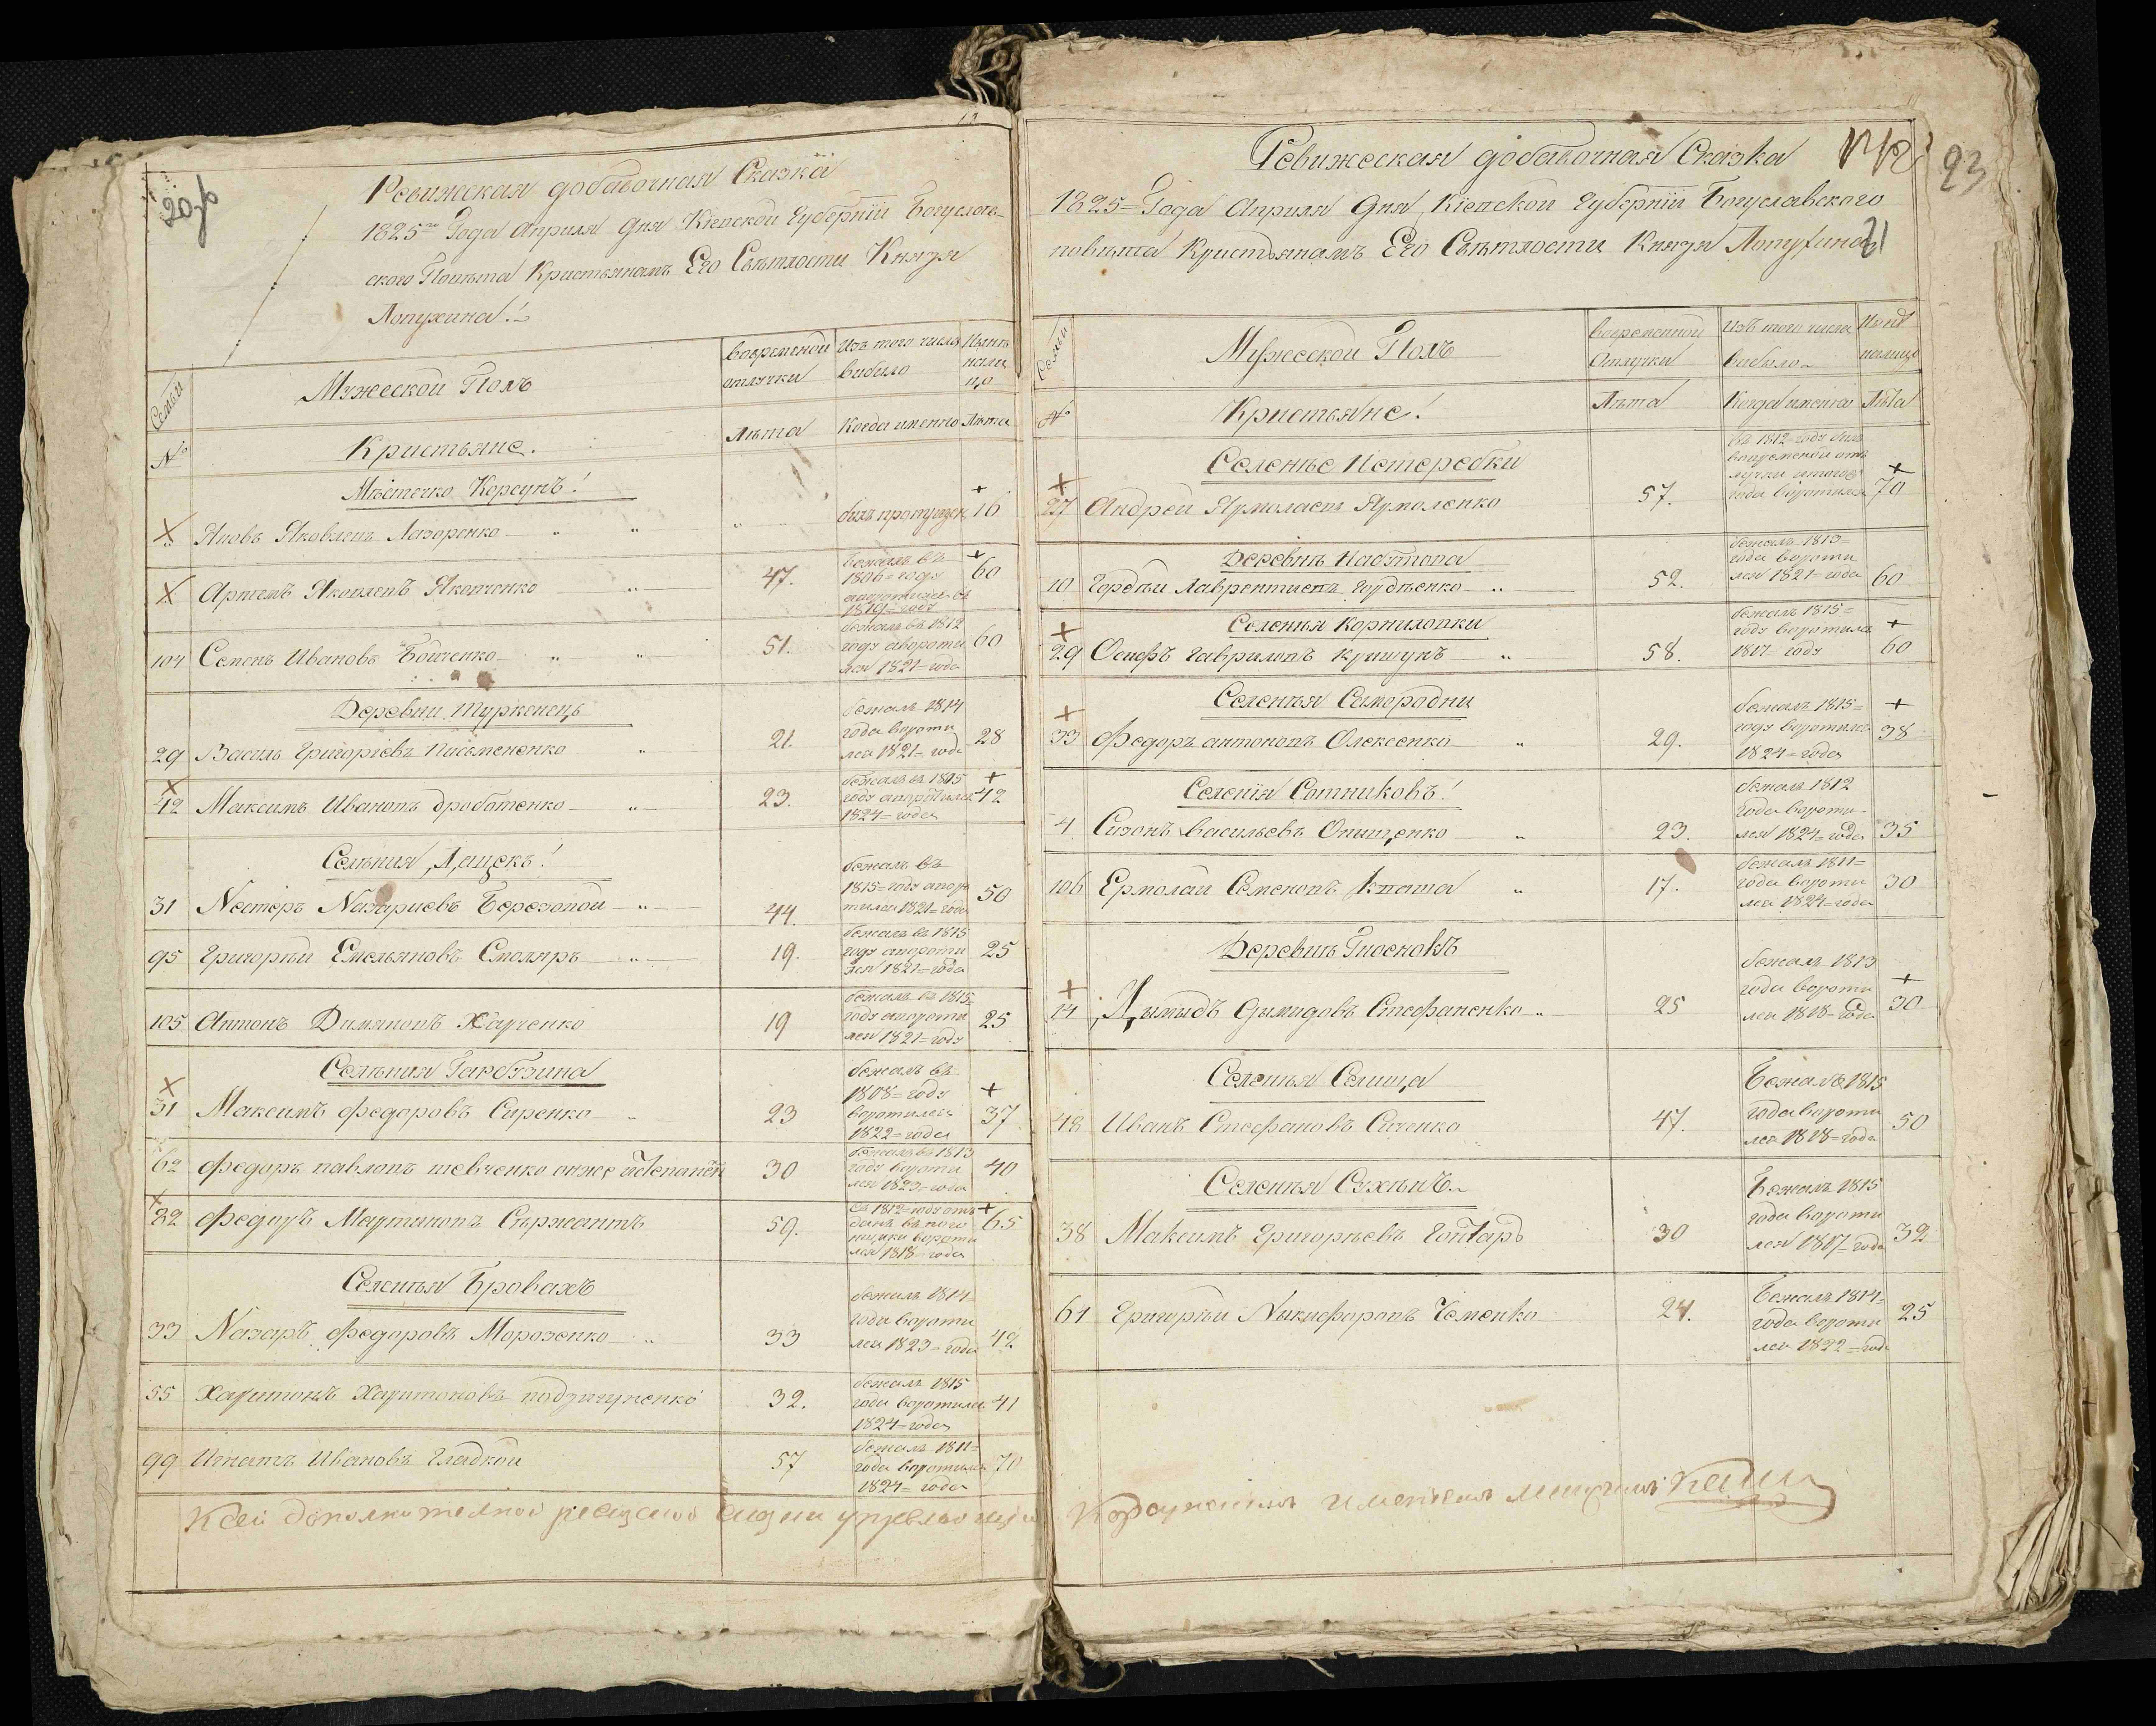 20
Ревижская добавочная Сказка
1825го Года Априля Дня Кіевской Губерніи Богуслав-
ского Повѣта Кристьянамъ Его Свѣтлости Князя
Лопухина!
Семьи
Мужеской Полъ
вовременой отлучки
Изъ того числа вибило
Нынѣ налицо
№
Кристьяне.
Лѣта
Когда именно
Лѣта
Мѣстечко Корсунъ!
Яковъ Яковлевъ Лазоренко
билъ пропущен
16
Артемъ Яковлевъ Яковченко
47.
бежалъ въ
1806=году
аворотился въ
1819=году
60
104 Семенъ Ивановъ Бойченко
51.
бежалъ въ 1812
году авороти
лся 1821=года
60
Деревни Туркенецъ
29 Василь Григоріевъ Письмененко
21.
бежалъ 1814
года вороти
лся 1821=года
28
42 Максимъ Ивановъ Дроботенко
23.
бежалъ въ 1805
году аворотился
1824=года
42
Селѣния Лящекъ!
31 Нестеръ Назариевъ Березовой
44.
бежалъ въ
1815=году авора
тился 1821=года
50
95 Григорѣй Емельяновъ Смоляръ
19.
бежалъ въ 1815
году авороти
лся 1821=года
25
105 Антонъ Димяновъ Харченко
19
бежалъ въ 1815=
году авороти
лся 1821=году
25
Селѣния Гарбузина
31 Максимъ Федоровъ Сиренко
23
бежалъ въ
1808=году
воротился
1822=года
37
62 Федоръ павловъ шевченко онже
30
бежалъ въ 1813
году вороти
лся 1823=года
40
22 Федоръ Мартиновъ Сѣржантъ
59.
въ 1812=году отъ
данъ въ пого
нщики вороти
лся 1818=года
65
Селенья Бровахъ
33 Назаръ Федоровъ Морозенко
33
бежалъ 1814=
года вороти
лся 1823=года
42
55 Харитонъ Харитоновъ
32.
бежалъ 1815
года воротился
1824=года
41
99 Игнатъ Ивановъ Гладкой
57
бежалъ 1811=
года воротился
1824=года
70
Ксей дополнителной
23
Ревижеская добавочная Сказка
1825=Года Априля Дня, Кіевской Губерніи Богуславского
повѣта Кристьянамъ Его Свѣтлости Князя Лопухина
21
Семьи
Мужеской Полъ
вовременной Отлучки
Изъ того числа вибило
Нынѣ налицо
№
Кристьяне!
Лѣта
Когда именно
Лѣта
Селенье Нетеребки
27 Андрей Ярмолаевъ Ярмоленко
57.
въ 1812=году билъ
вовременой отъ
лучки
года воротился
70
Деревнѣ Набутова
10 Гордѣй Лаврентиевъ Гордѣенко
52.
бежалъ 1813=
года вороти
лся 1821=года
60
Селенья Корниловки
29 Осифъ Гавриловъ Кришунъ
58.
бежалъ 1815=
году воротился
1817 году
60
Селенья Самородни
33 Федоръ антоновъ Олексенко
29.
бежалъ 1815=
году воротился
1824=года
38
Селенія Сотниковъ!
4 Сизонъ Васильевъ Онищенко
23.
бежалъ 1812
года вороти-
лся 1824=года
35
106 Ермолай Семеновъ Кваша
17.
бежалъ 1811=
года вороти
лся 1824=года
30
Деревнѣ Гноенокъ
14 Дымидъ Дымидовъ Стефаненко
25
бежалъ 1813
года вороти
лся 1818=года
30
Селенья Селища
48 Иванъ Стефановъ Сиченко
47.
Бежалъ 1815
года вороти
лся 1818=года
50
Селенья Сухынъ
38 Максимъ Григорьевъ Гонтаръ
30
Бежалъ 1815
года вороти
лся 1817=года
32
61 Григорѣй Никифоровъ Чеменко
24.
Бежалъ 1814=
года вороти
лся 1822=года
25
имениемъ